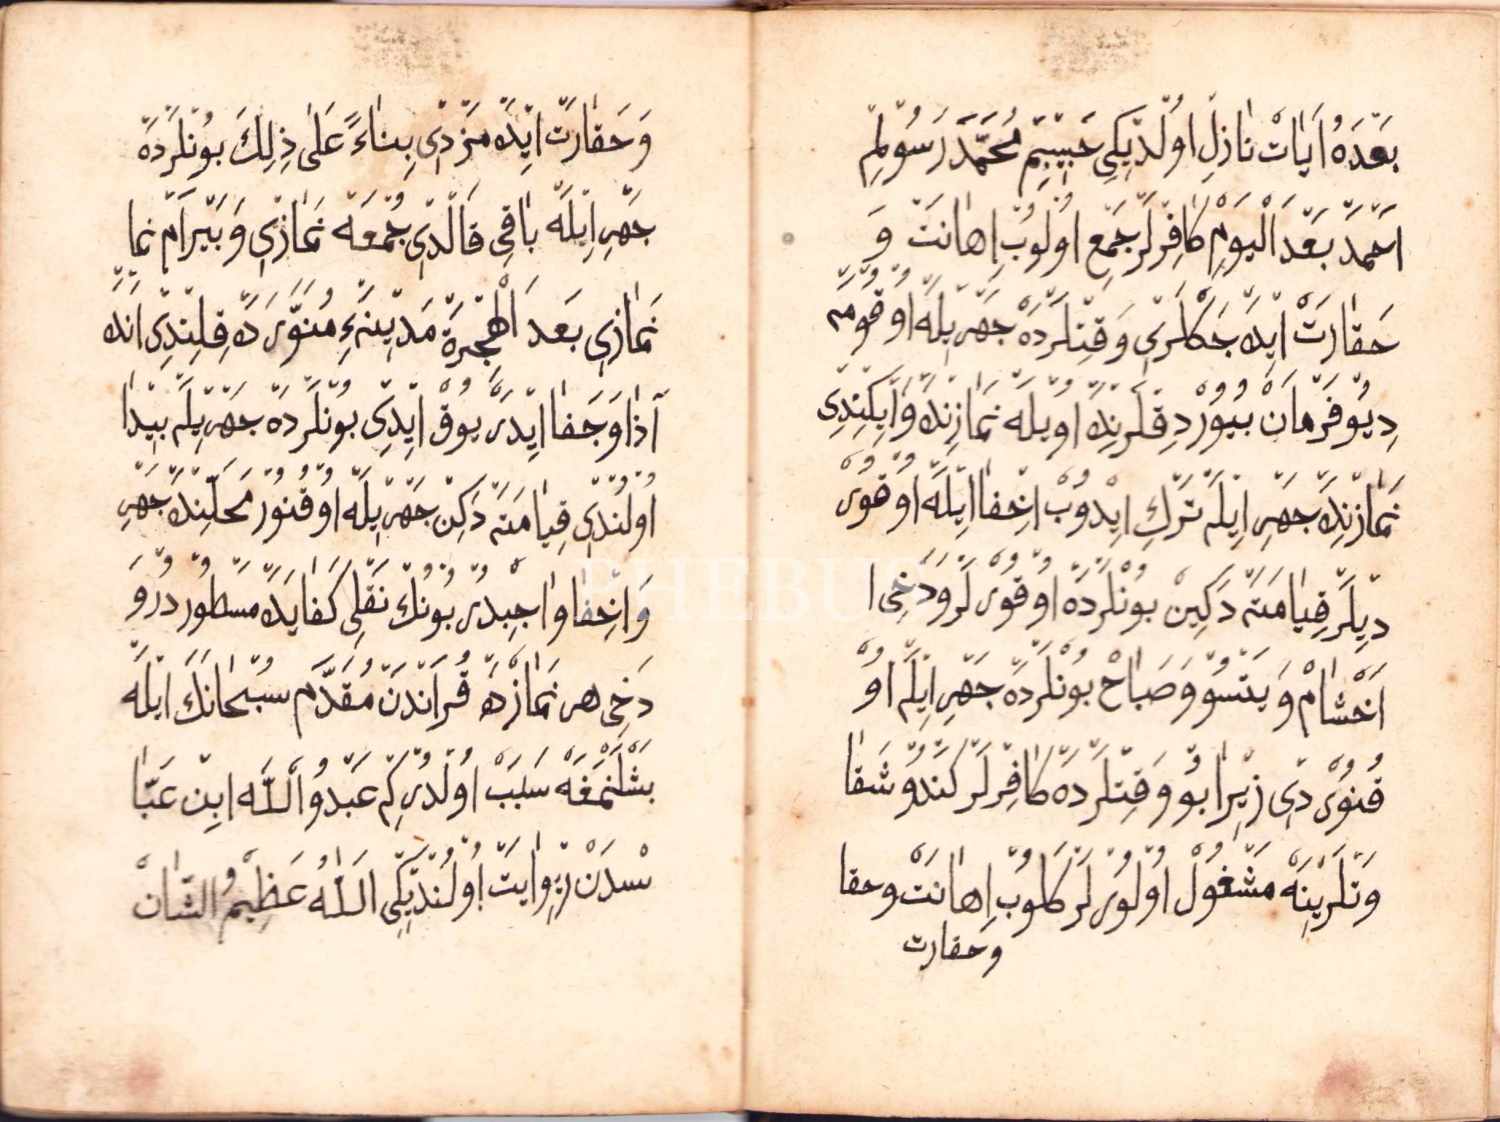 بَعْدَهُ اَيَاتْ نَازِلْ اوُلْدِيكِي حَبِيبِمْ مُحَمَّدْ رَسُولِمْ
اَحْمَدْ بَعْدَ اَلْيَوْمْ كَافِرْلَرْ جَمْعِ اوُلُوبْ اِهَانَتْ وَ
حَقَارَتْ ايِدَهْ جَكْلَرِي وَقِتْلَرْدَهْ جَهْرِيلَهْ اوُقُومَهْ
دِيُو فَرْمَانْ بُيُورْدِقْلَرِنْدَهْ اوُيْلَهْ نَمَازِنْدَهْ وَايِكِنْدِى
نَمَازِنْدَهْ جَهْرِ ايِلَهْ تَرْكِ ايِدُوبْ اِخْفَا ايِلَهْ اوُقُوُرْ
دِيلَرْ قِيَامَتَهْ دَكِينْ بُونْلَرْدَهْ اوُقُورْلَرْ وَدَخِى ا
اَخْشَامْ وَيَتْسُو وَصَبَاحْ بُونْلَرْدَهْ جَهْرِ ايِلَهْ اوُ
قُنُورْدِى زِيرَا بُو وَقِتْلَرْدَهْ كَافِرْلَرْ كَنْدُو شَقَا
وَتْلَرِينَهْ مَشْغُولْ اوُلُورْلَرْ كَلُوبْ اِهَانَتْ وحقا
وحقارت
وَحَقَارَتْ ايِدَهْ مَزْدِى بِنَاءً عَلَى ذِلِكَ بُونْلَرْدَهْ
جَهْرِ ايِلَهْ بَاقِى قَالْدِى جُمْعَهْ نَمَازِى وَبَيْرَامْ نما
نَمَازِى بَعْدَ الْهِجْرَةْ مَدِينَهءِ مُنَوَّرَهْ دَهْ قِلِنْدِى اندَهْ
اَذَا وَجَفَا ايِدَرْ يوُقْ ايِدِى بُونْلَرْدَهْ جَهْرِيلَهْ بيدا
اوُلُنْدِى قِيَامَتَهْ دَكِنْ جَهْرِيلَهْ اوُقُنُورْ مَحَلِّنْدَهْ جَهْرِ
وَاِخْفَا وَاجِبْدُرْ بُونُكْ نَقْلِى كَفَايَدَهْ مَسْطُورْدُرْ وَ
دَخِى هر نَمَازْدَهْ قُرْاَنْدَنْ مُقَدَّمْ سُبْحَانَكَ ايلَهْ
بَشْلَنْمَغَهْ سَبَبْ اوُلْدُرْكِمْ عَبْدُو اَللَّه ابِنْ عَبَّا
سْدَنْ رِوَايَتْ اوُلُنْدِيكِى اَللَّهُ عَظِيمُ الشَّانْ